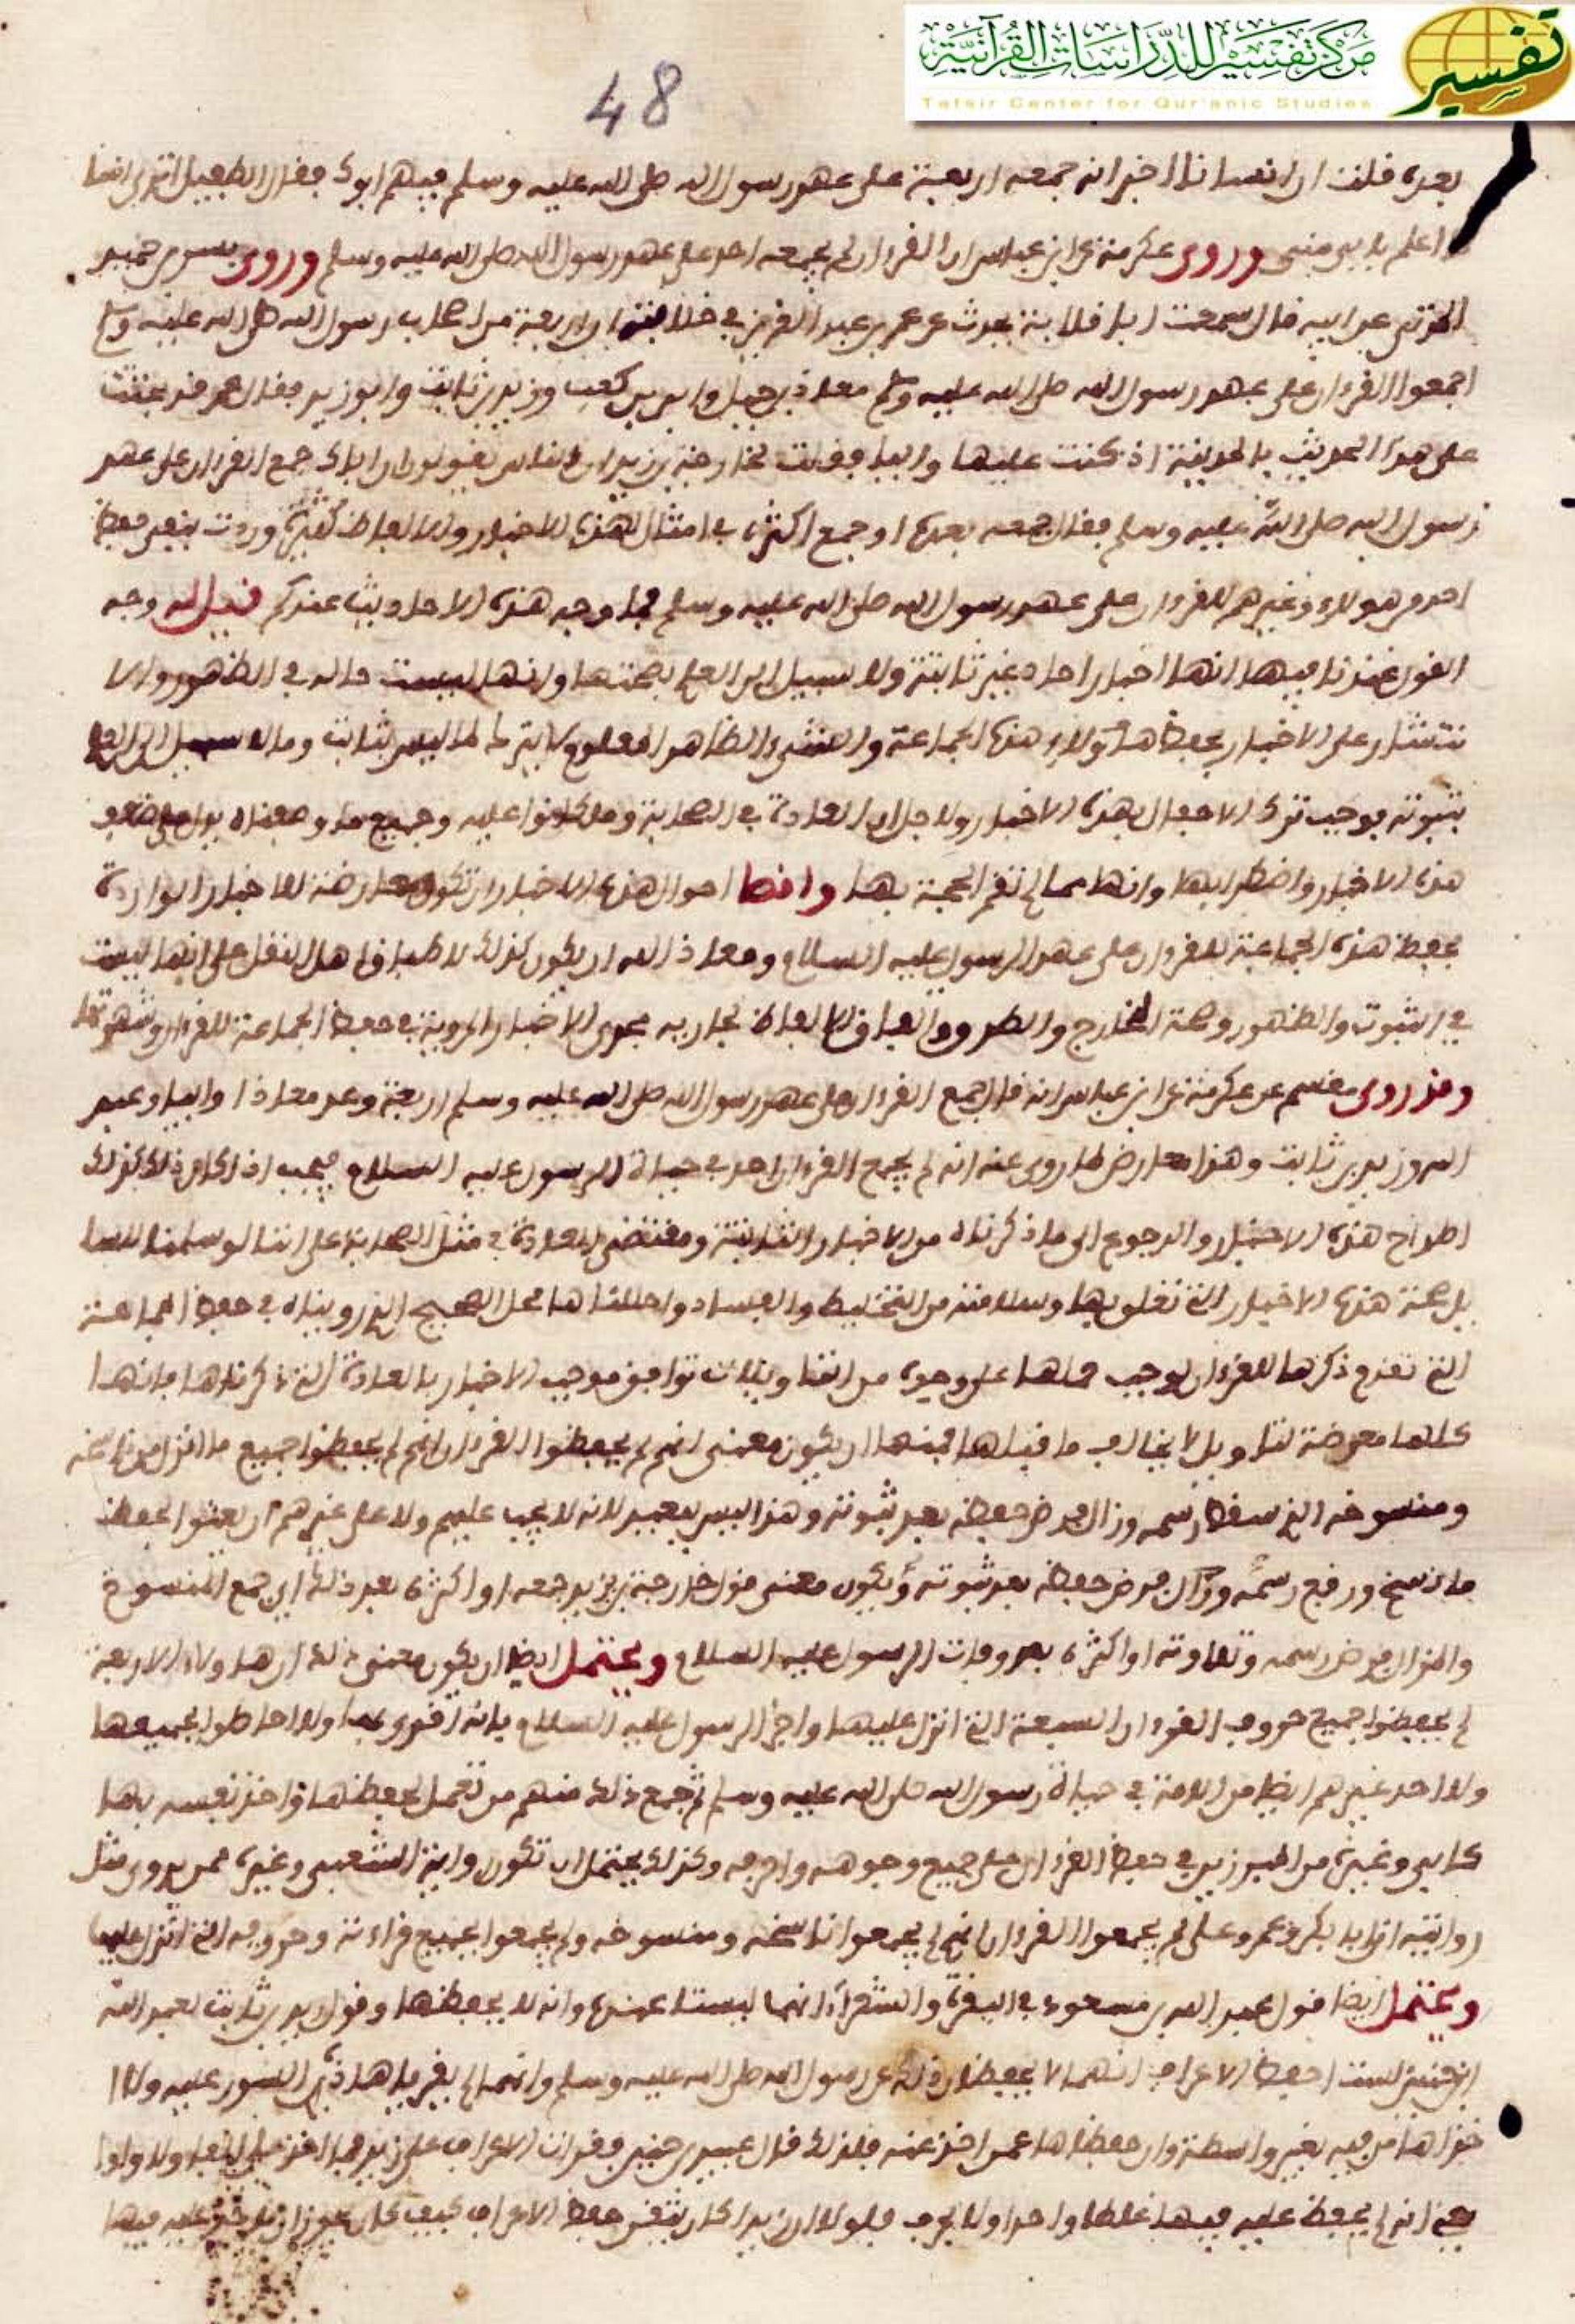 مركز تفسير للدراسات القرآنية
Tafsir Center for Qur'anic Studies
تفسير
48
بعده فقلت ان انسانا اخبرانه جمعه اربعة على عهد رسول الله صلى الله عليه وسلم فيهم ابوك فقال الطفيل اترى انسانا
اعلم بابي مني وروى عكرمة عن ابن عباس ان القرءان لم يجمعه احد على عهد رسول الله صلى الله عليه وسلم وروى بشر بن حميد
المزني عن ابيه قال سمعت ابا قلابة يحدث عمر بن عبد العزيز في خلافته ان اربعة من اصحاب رسول الله صلى الله عليه وسلم
اجمعوا القرءان على عهد رسول الله صلى الله عليه وسلم معاذ بن جبل وابي بن كعب وزيد بن ثابت وابو زيد فقال عمر قد بحثت
على هذا الحديث بالمدينة اذ كنت عليها واليا فقلت لخارجة بن زيد ان الناس يقولون ان اباك جمع القرءان على عهد
رسول الله صلى الله عليه وسلم فقال جمعه بعده او جمع اكثره في امثال لهذه الاخبار والالفاظ كثيرة وردت بنفي حفظ
احد من هولاء وغيرهم للقرءان على عهد رسول الله صلى الله عليه وسلم فما وجه هذه الاحاديث عندكم قيل له وجه
القول عندنا فيها انها اخبار احاد غير ثابتة ولا سبيل الى العلم بصحتها وانها ليست حاله في الظهور والا
نتشار على الاخبار بحفظ هاولاء هذه الجماعة والشيء الظاهر المعلوم لا يترك لما ليس بثابت وما لا سبيل الى العلم
بثبوته فوجب ترك الاحفال بهذه الاخبار ولاجل ان العادة في الصحابة وما كانوا عليه وجميع ما وصفناه يدل على ضعف
هذه الاخبار واضطرابها وانها مما لم تقم الحجة بها واقصا احوال هذه الاخبار ان تكون معارضة للاخبار الواردة
بحفظ هذه الجماعة للقرءان على عهد الرسول عليه السلام ومعاذ الله ان يكون كذلك لاطباق اهل النقل على انها ليست
في الثبوت والظهور وصحة المخارج والطرق واتفاق الالفاظ جارية مجرى الاخبار المروية في حفظ الجماعة للقرءان وشهرتها
وقد روى مقسم عن عكرمة عن ابن عباس انه قال جمع القرءان على عهد رسول الله صلى الله عليه وسلم اربعة وعد معاذا وابيا وعبد
الله وزيد بن ثابت وهذا معارض لما روى عنه انه لم يجمع القرءان احد في حياة الرسول عليه السلام فيجب اذا كان ذلك كذلك
اطراح هذه الاخبار والرجوع الى ما ذكرناه من الاخبار الثابتة ومقتضى العادة في مثل الصحابة على اننا لو سلمنا للسا
يل صحة هذه الاخبار التي تعلق بها وسلامته من التخليط والفساد واحللناها محل الصحيح الذي رويناه في حفظ الجماعة
التي تقدم ذكرها للقرءان لوجب حملها على وجوه من التاويلات توافق موجب الاخبار بالعادة التي ذكرناها فانها
كلها معرضة لتاويل لا يخالف ما قبلها فمنها ان يكون معنى انهم لم يحفظوا القرءان انهم لم يحفظوا جميع ما انزل من ناسخه
ومنسوخه الذي سقط رسمه وزال فرض حفظه بعد ثبوته وهذا ليس ببعيد لانه لا يجب عليهم ولا على غيرهم ان يعتنوا بحفظ
ما نسخ ورفع رسمه وزال فرض حفظه بعد ثبوته ويكون معنى قول خارجة بن زيد جمعه او اكثره بعد ذلك اي جمع المنسوخ
والمزال فرض رسمه وتلاوته او اكثره بعد وفات الرسول عليه السلام ويحتمل ايضا ان يكون معنى ذلك ان هاولاء الاربعة
لم يحفظوا جميع حروف القرءان السبعة التي انزل عليها واخبر الرسول عليه السلام بانه اقرى بها ولا احاطوا بجميعها
ولا احد غيرهم ايضا من الامة في حياة رسول الله صلى الله عليه وسلم ثم جمع ذلك منهم من تعمل لحفظها واخذ نفسه بها
كابي وغيره من المبرزين في حفظ القرءان على جميع وجوهه واحرفه وكذلك يحتمل ان تكون رواية الشعبي وغيره ممن يروى مثل
روايته ان ابا بكر وعمر وعلي لم يجمعوا القرءان انهم لم يجمعوا ناسخه ومنسوخه ولم يجمعوا جميع قراءته وحروفه التي انزل عليها
ويحتمل ايضا قول عبد الله بن مسعود في البقرة والشعرآء انهما ليستا عنده وانه لا يحفظها وقول زيد بن ثابت لعبد الله
ابن حنين لست احفظ الاعراف انهما لا يحفظان ذلك عن رسول الله صلى الله عليه وسلم وانهما لم يقرياها ذي السور عليه ولا ا
خذاها من فيه بغير واسطة وان حفظاها عمن اخذ عنه فلذلك قال عبيد بن حنين فقرات الاعراف على زيد فما اخذ علي الفا ولا واوا
يعني انه لم يحفظ عليه فيها غلطا واحدا ولا بحرف فلو لا ان زيدا كان يتقن حفظ الاعراف كيف كان يجوز ان يأخذ عليه فيها